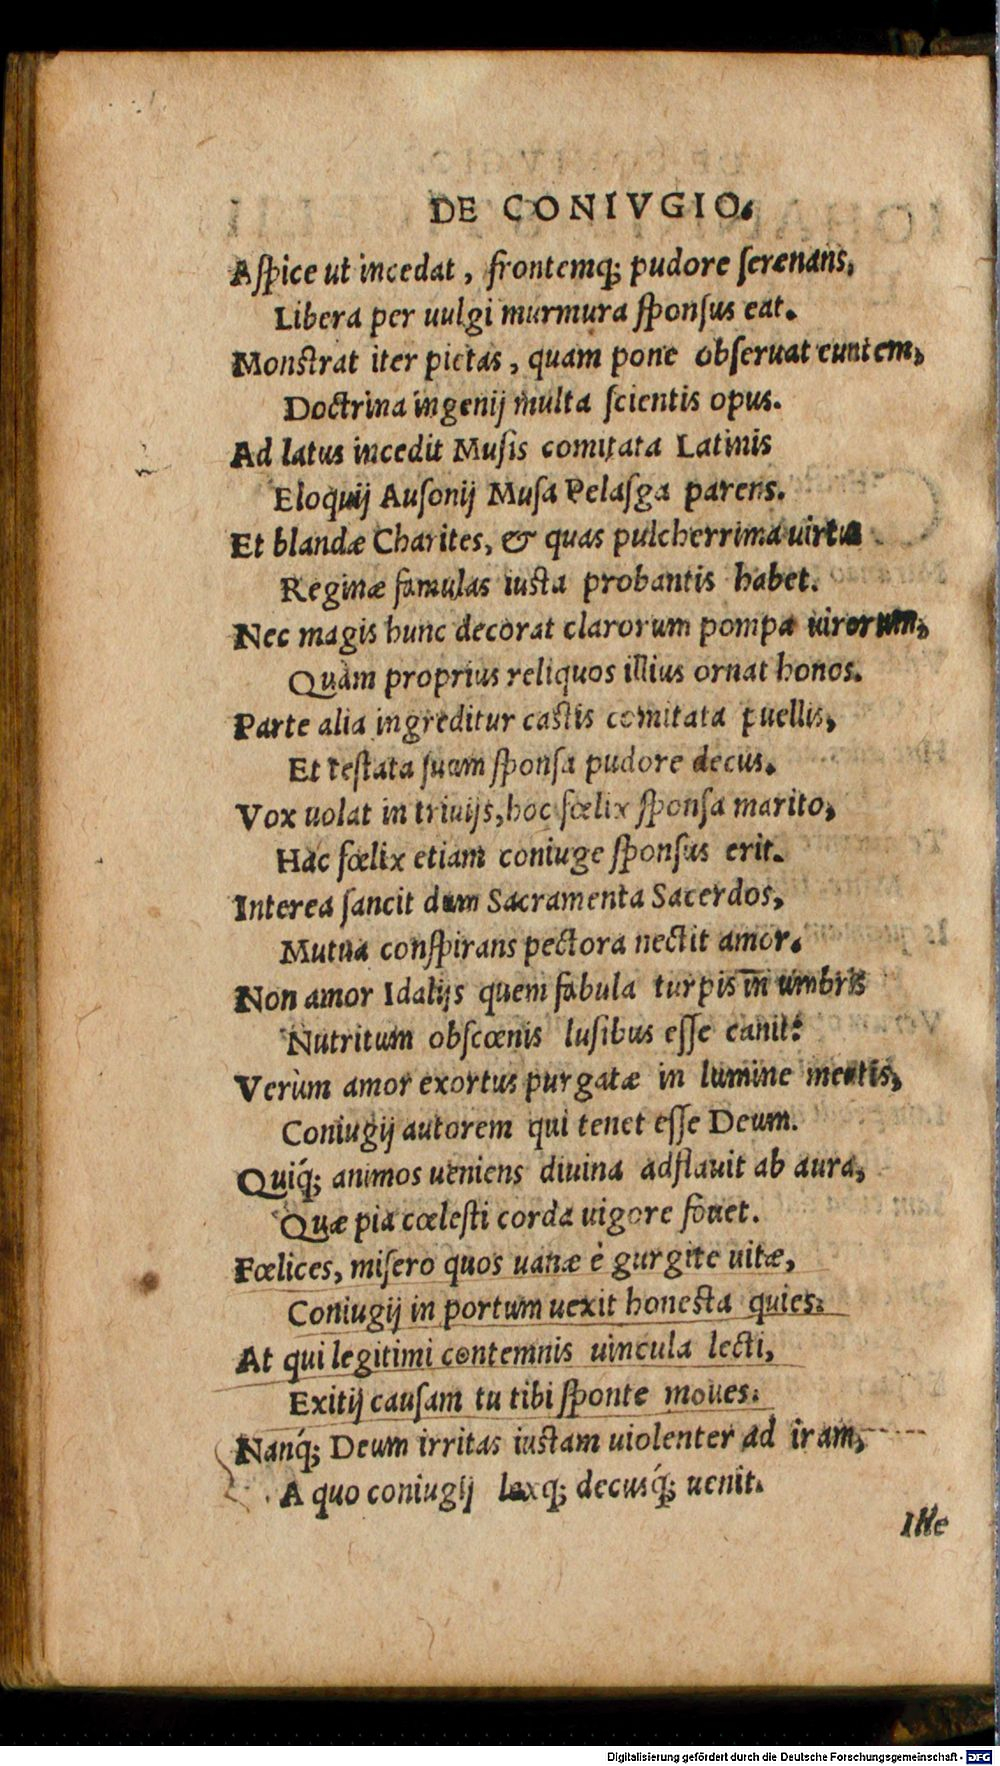 DE CONIVGIO.
Aſpice ut incedat, frontemq́; pudore ſerenans,
Libera per uulgi murmura ſponſus eat.
Monſtrat iter pietas, quam pone obſeruat euntem,
Doctrina ingenij multa ſcientis opus.
Ad latus incedit Muſis comitata Latinis
Eloquij Auſonij Muſa Pelaſga parens.
Et blandæ Charites, & quas pulcherrima uirtus
Reginæ famulas iuſta probantis habet.
Nec magis hunc decorat clarorum pompa uirorum,
Quàm proprius reliquos illius ornat honos.
Parte alia ingreditur caſtis comitata puellis,
Et teſtata ſuum ſponſa pudore decus.
Vox uolat in triuijs, hoc fœlix ſponſa marito,
Hac fœlix etiam coniuge ſponſus erit.
Interea ſancit dum Sacramenta Sacerdos,
Mutua conſpirans pectora nectit amor.
Non amor Idalijs quem fabula turpis in umbris
Nutritum obſcœnis luſibus eſſe canit:
Verùm amor exortus purgatæ in lumine mentis,
Coniugij autorem qui tenet eſſe Deum.
Quiq́; animos ueniens diuina adflauit ab aura,
Quæ pia cœleſti corda uigore fouet.
Fœlices, miſero quos uanæ è gurgite uitæ,
Coniugij in portum uexit honeſta quies.
At qui legitimi contemnis uincula lecti,
Exitij cauſam tu tibi ſponte moues.
Nanq́; Deum irritas iuſtam uiolenter ad iram,
A quo coniugij lexq; decusq́; uenit.
Ille
Digitalisierung gefördert durch die Deutsche Forschungsgemeinschaft - DFG